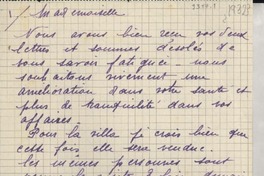 1/ Mademoiselle
Nous avons bien reçu vos deux
lettres et sommes desolés de
vous savoir fatiguée. nous
souhaitons vivement une
amelioration dans votre santé et
plus de tranquilité dans vos
affaires.
Pour la villa je crois bien que
cette fois elle sera vendue.
les mêmes personnes sont